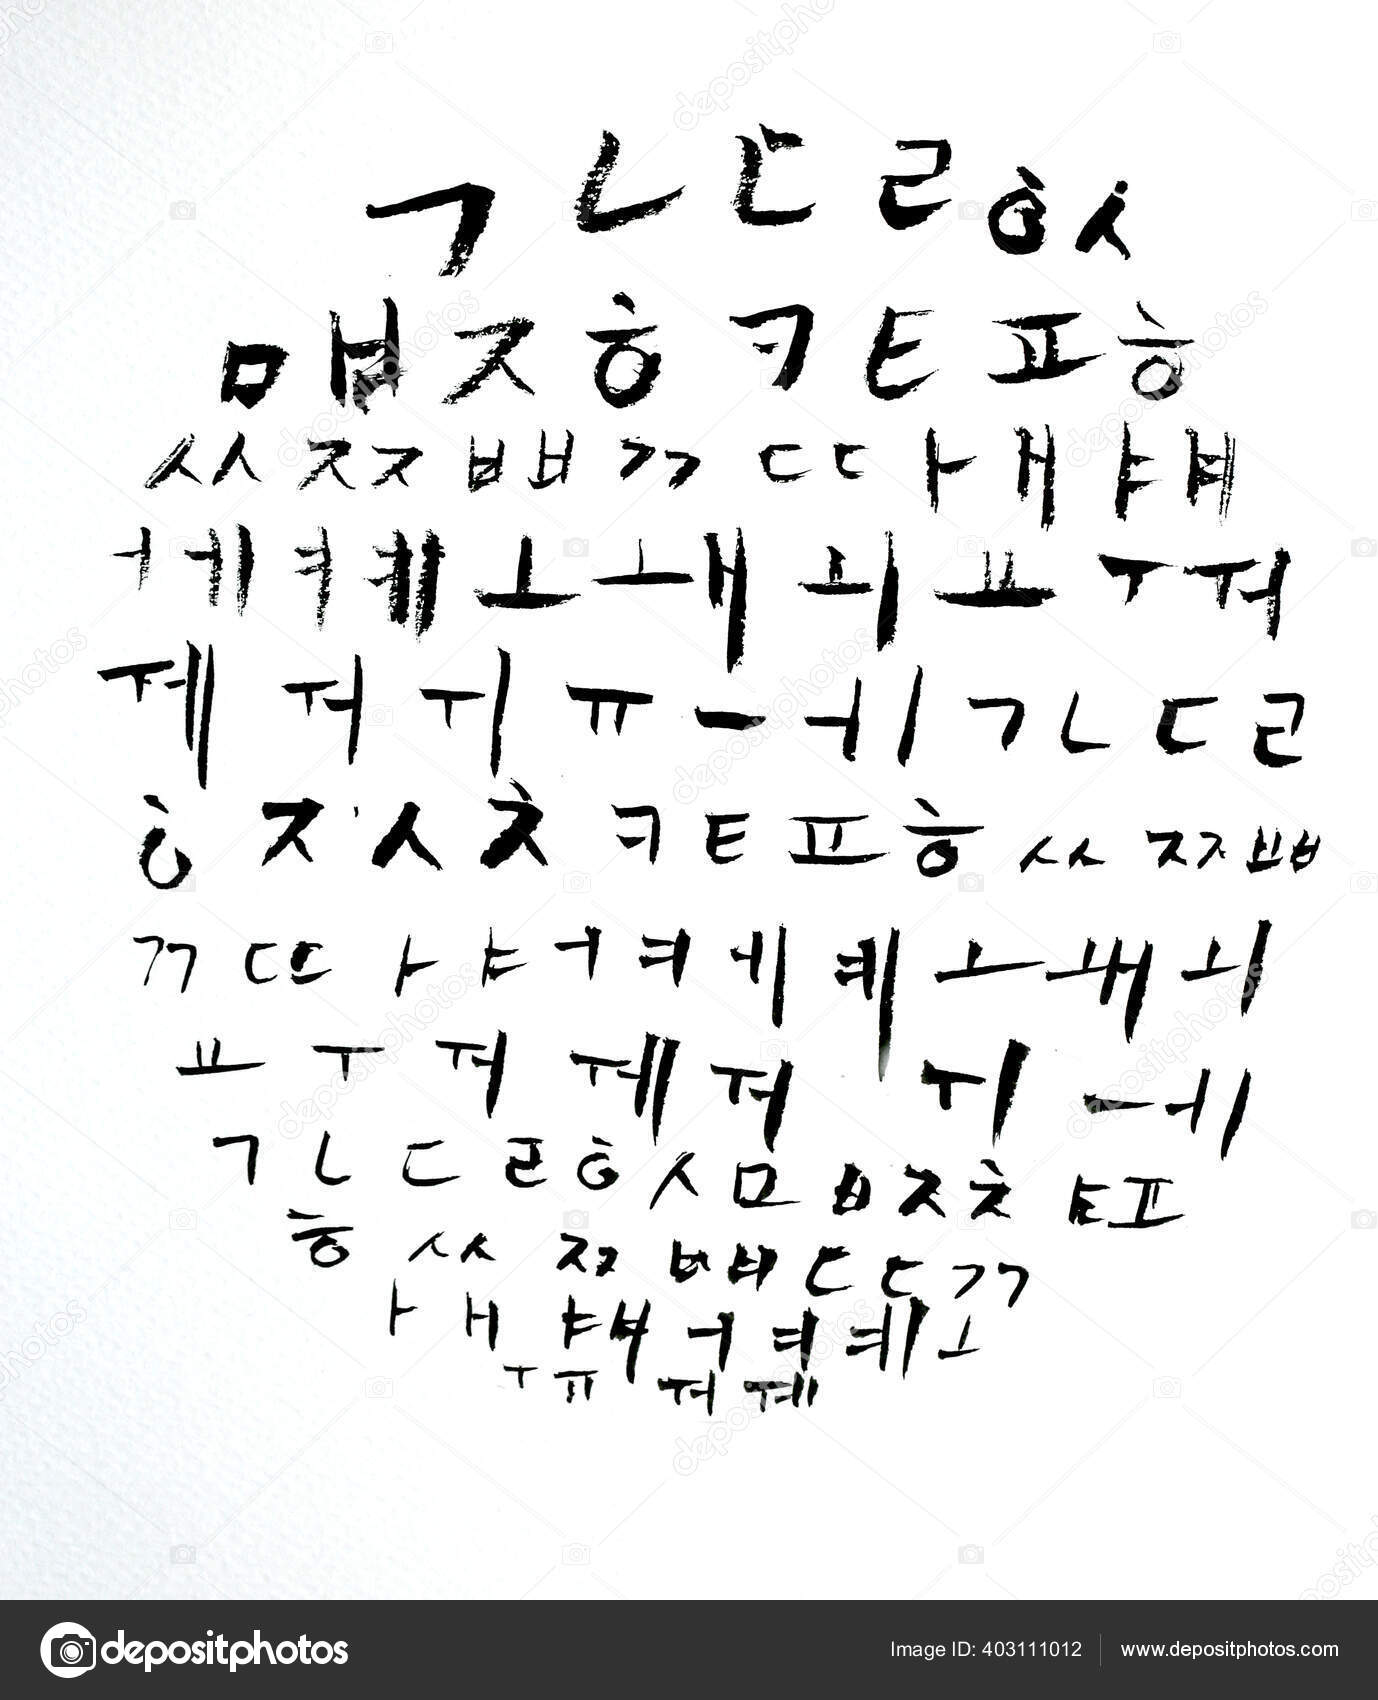 ㄱ ㄴ ㄷ ㄹ ㅎ ㅅ
ㅁ ㅂ ㅈ ㅎ ㅋ ㅌ ㅍ ㅎ
ㅆ ㅉ ㅃ ㄲ ㄸ ㅏ ㅐ ㅑ ㅒ
ㅓ ㅔ ㅕ ㅖ ㅗ ㅙ ㅚ ㅛ ㅜ ㅝ
ㅞ ㅝ ㅟ ㅠ ㅡ ㅔ ㅣ ㄱ ㄴ ㄷ ㄹ
ㅎ ㅈ ㅅ ㅊ ㅋ ㅌ ㅍ ㅎ ㅆ ㅉ ㅃ
ㄲ ㄸ ㅏ ㅑ ㅓ ㅕ ㅔ ㅖ ㅗ ㅙ ㅚ
ㅛ ㅜ ㅝ ㅞ ㅝ ㅟ ㅡ ㅔ ㅣ
ㄱ ㄴ ㄷ ㄹ ㅎ ㅅ ㅁ ㅂ ㅈ ㅊ ㅌ ㅍ
ㅎ ㅆ ㅉ ㅃ ㄸ ㄲ
ㅏ ㅐ ㅑ ㅒ ㅓ ㅕ ㅖ ㅗ
ㅜ ㅠ ㅝ ㅞ
depositphotos
Image ID: 403111012
www.depositphotos.com